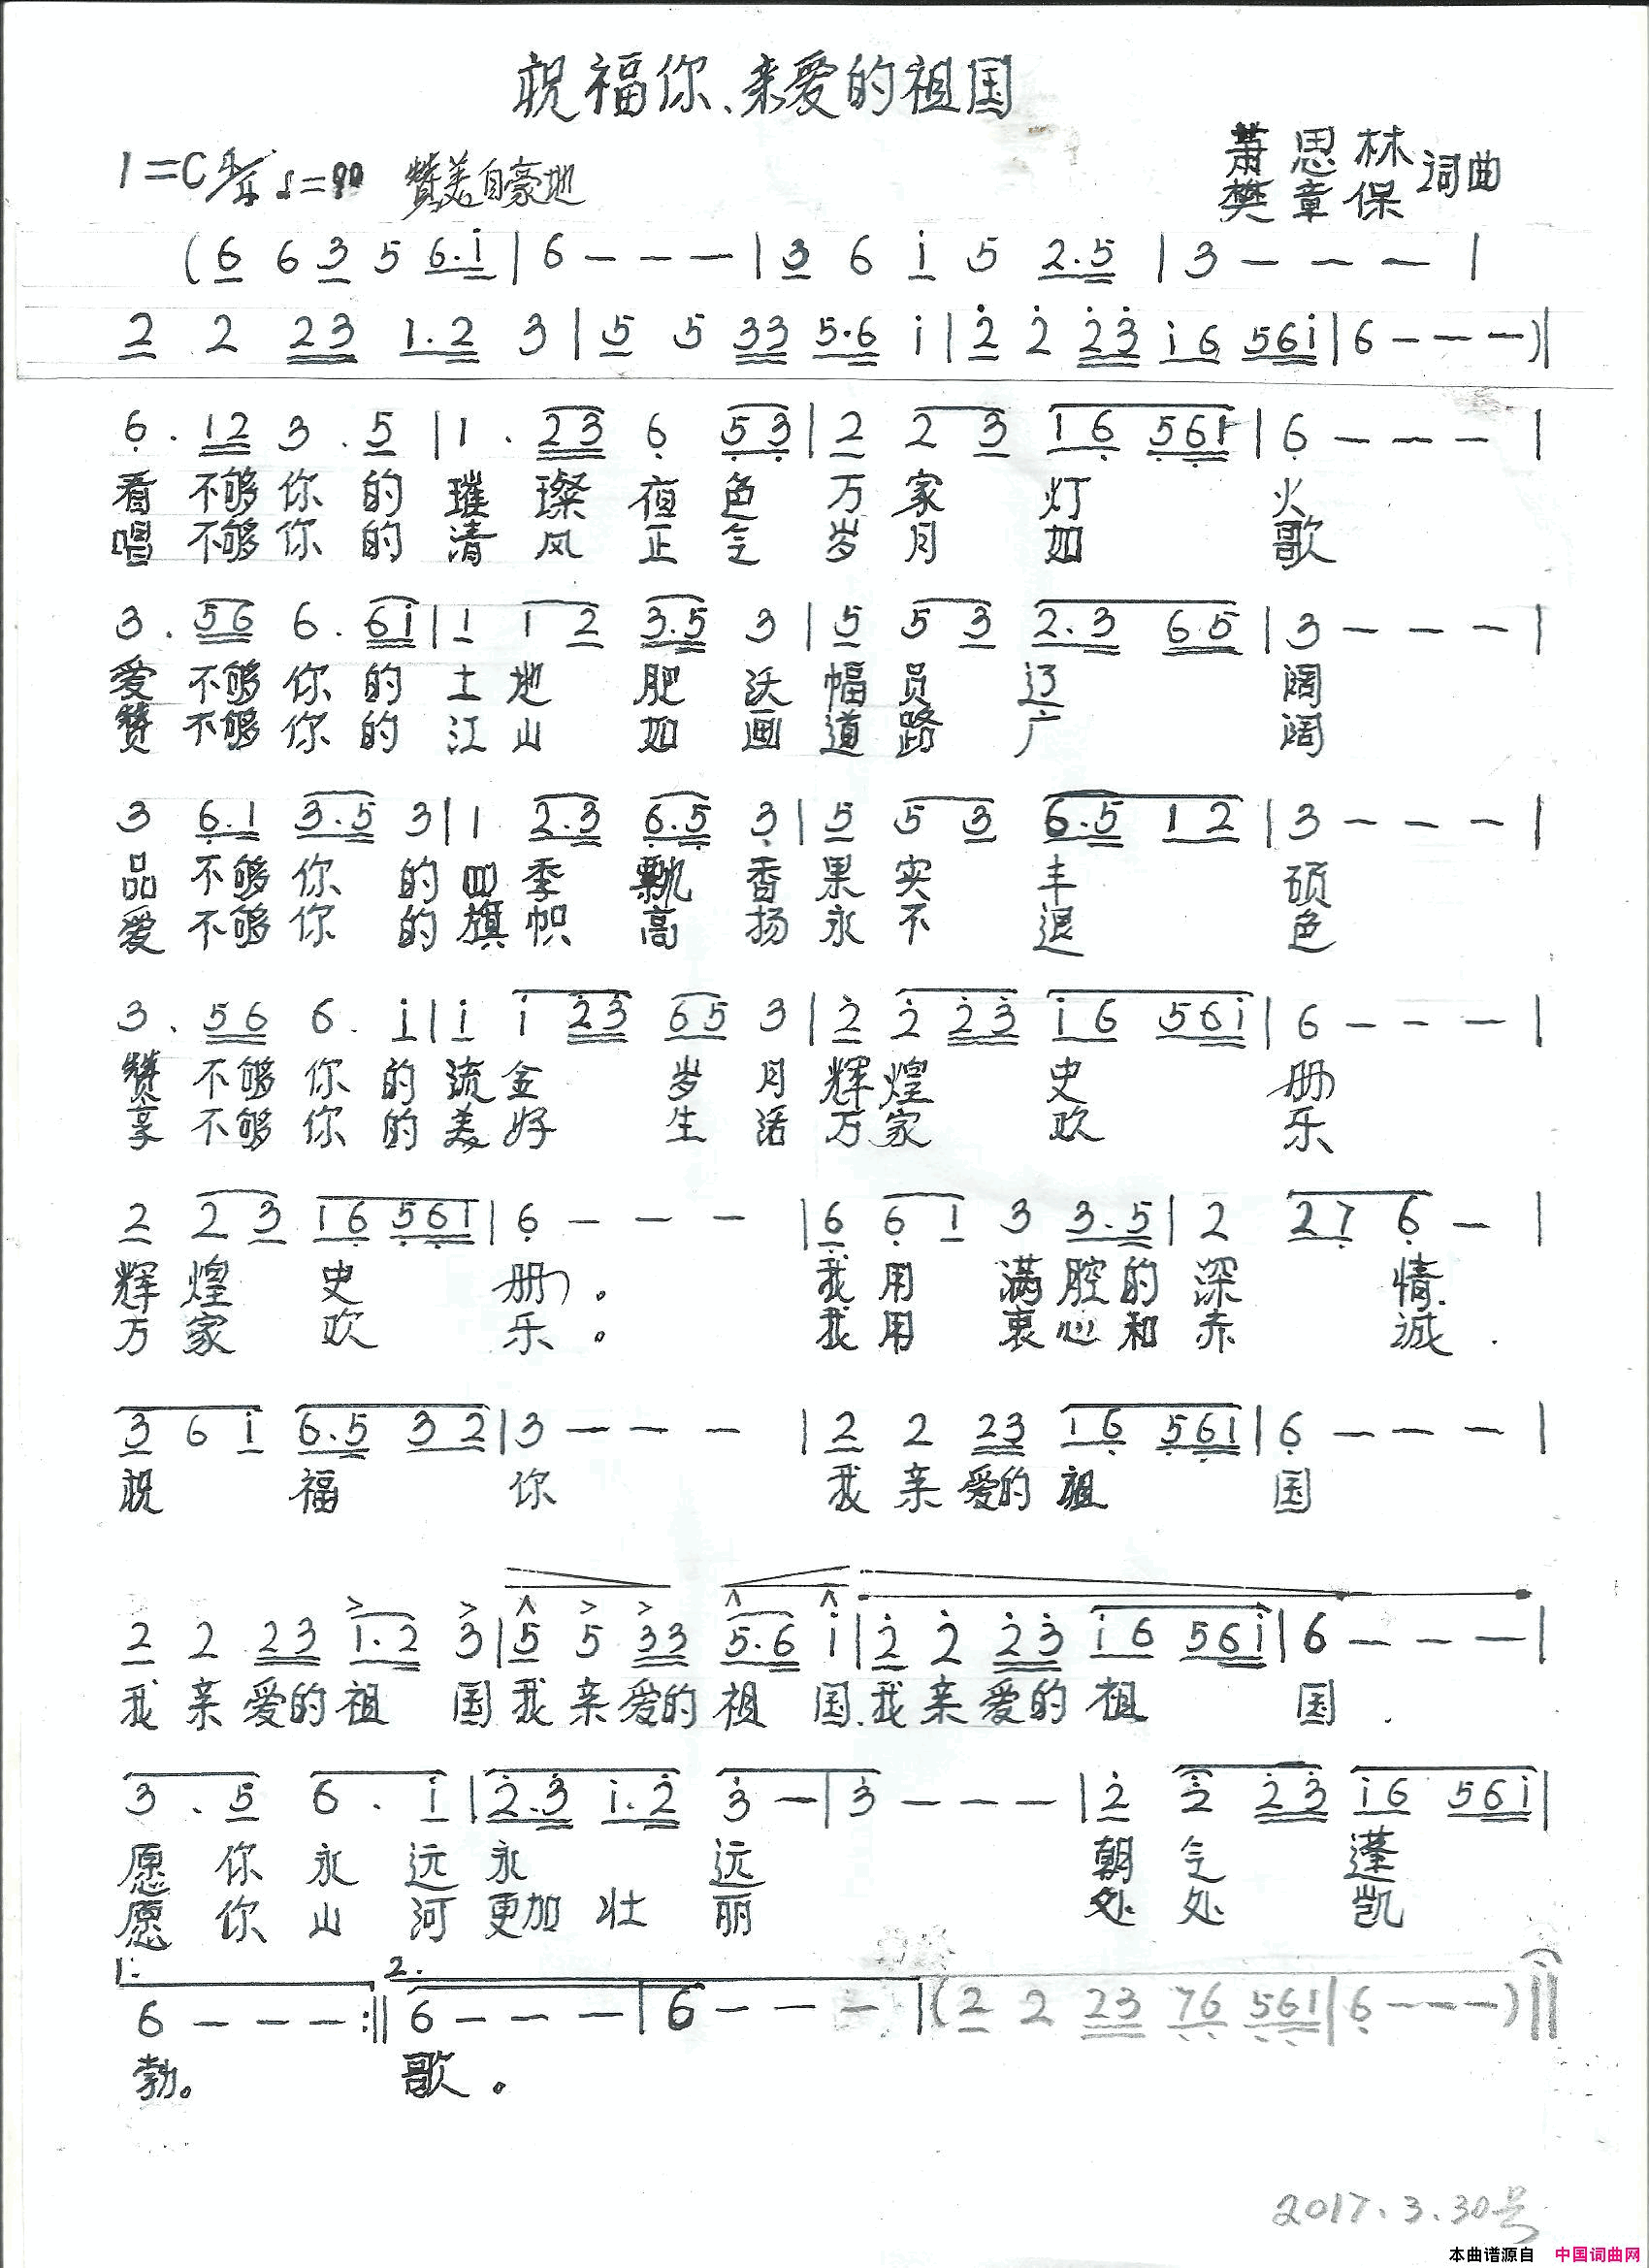 祝福你、亲爱的祖国
萧思林
1=C 4/4 赞美自豪地
樊章保 词曲
(6 6 3 5 6.i | 6 - - - | 3 6 i 5 2.5 | 3 - - - |
2 2 23 1.2 3 | 5 5 33 5.6 i | 2 2 23 i6 56i | 6 - - - )|
6. 12 3. 5 | 1. 23 6 53 | 2 2 3 16 561 | 6 - - - |
看不够你的璀璨夜色万家灯火
唱不够你的清风正气岁月如歌
3. 56 6. 6i | 1 1 2 3.5 3 | 5 5 3 2.3 6.5 | 3 - - - |
爱不够你的土地肥沃幅员辽阔
赞不够你的江山如画道路广阔
3 6.1 3.5 3 | 1 2.3 6.5 3 | 5 5 3 6.5 12 | 3 - - - |
品不够你的四季飘香果实丰硕
爱不够你的旗帜高扬永不退色
3. 56 6. i | i i 23 65 3 | 2 2 23 i6 56i | 6 - - - |
赞不够你的流金岁月辉煌史册
享不够你的美好生活万家欢乐
2 2 3 16 561 | 6 - - - | 6 6 1 3 3.5 | 2 27 6 - |
辉煌史册。我用满腔的深情.
万家欢乐。我用衷心和赤诚.
3 6 i 6.5 32 | 3 - - - | 2 2 23 16 561 | 6 - - - |
祝福你我亲爱的祖国
2 2 23 1.2 3 | 5 5 33 5.6 i | 2 2 23 i6 56i | 6 - - - |
我亲爱的祖国我亲爱的祖国.我亲爱的祖国.
3. 5 6. i | 2.3 i.2 3 - | 3 - - - | 2 2 23 i6 56i |
愿你永远永远朝气蓬
愿你山河更加壮丽处处凯
1. 2.
6 - - - :|| 6 - - - | 6 - - - | (2 2 23 76 561 | 6 - - - )||
勃。歌。
2017.3.30号
本曲谱源自 中国词曲网